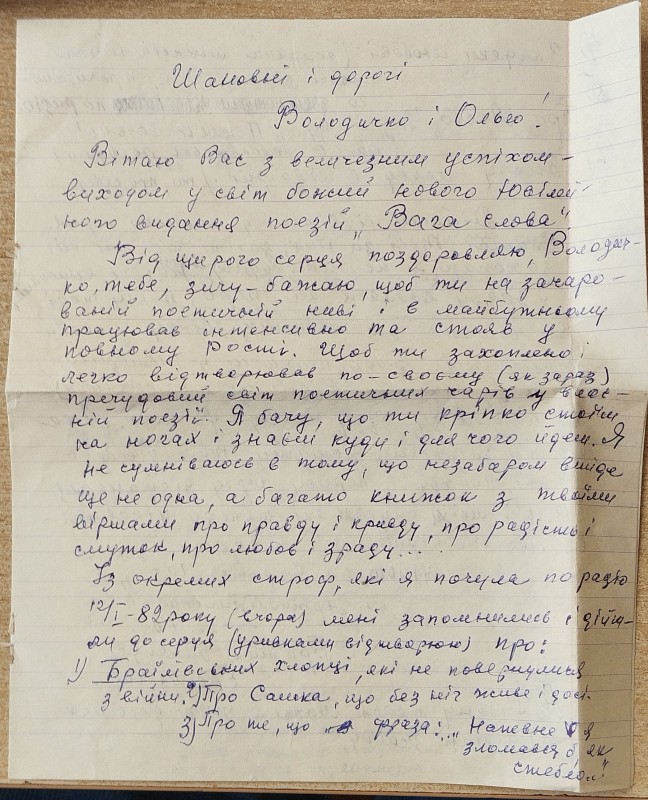 Шановні і дорогі
Володичко і Ольго!
Вітаю Вас з величезним успіхом –
виходом у світ божий нового Ювілей-
ного видання поезій „Вага слова".
Від щирого серця поздоровляю, Володич-
ко, тебе, зичу-бажаю, щоб ти на зачаро-
ваній поетичній ниві і в майбутньому
працював інтенсивно та стояв у
повному рості. Щоб ти захоплено і
легко відтворював по-своєму (як зараз)
пречудовий світ поетичних чарів у влас-
ній поезії. Я бачу, що ти кріпко стоїш
на ногах і знаєш куди і для чого йдеш. Я
не сумніваюсь в тому, що незабаром вийде
ще не одна, а багато книжок з твоїми
віршами про правду і кривду, про радість і
смуток, про любов і зраду....
Із окремих строф, які я почула по радіо
12/I-82 року (вчора) мені запомнились і дійш-
ли до серця (уривками відтворюю) про:
1) Браїлівських хлопці, які не повернулися
з війни. 2) Про Сашка, що без ніг живе і досі.
3) Про те, що фраза: „Напевне б я
зломався б, як
стебло..."